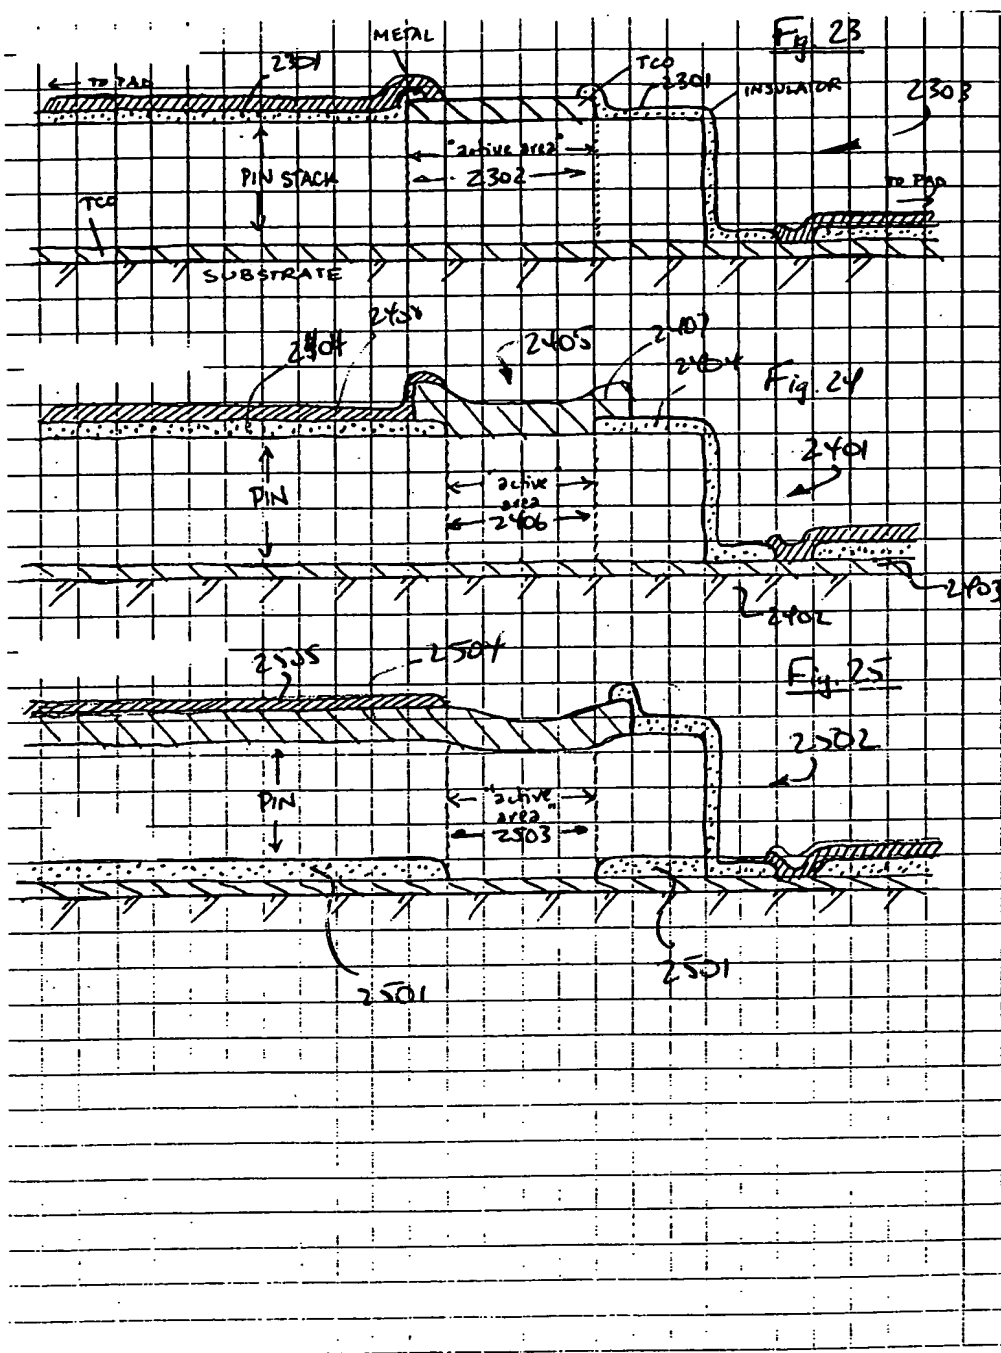 METAL
Fig. 23
← TO PAD
2301
TCO
2301
INSULATOR
2303
"active area"
2302
PIN STACK
TO PAD
TCO
SUBSTRATE
2404
2405
2407
2404
Fig. 24
2401
PIN
"active
area"
2406
2403
2402
2505
2504
Fig. 25
2502
PIN
"active
area"
2503
2501
2501